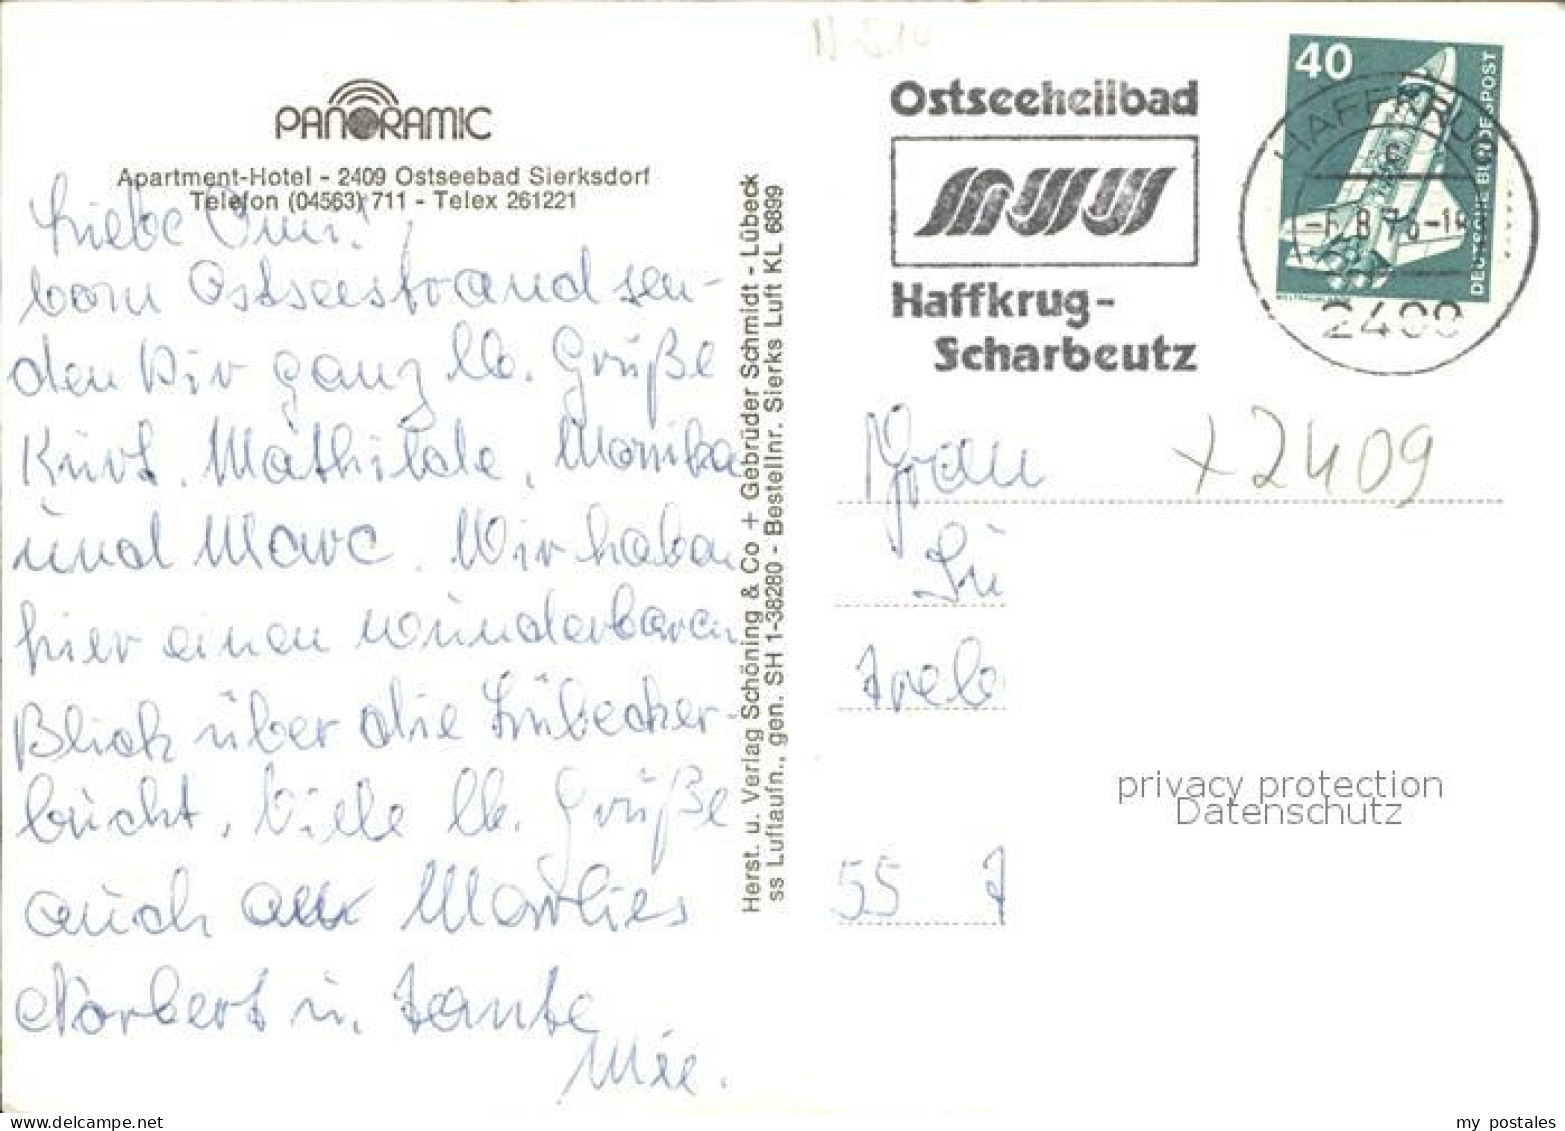 PANORAMIC
Apartment-Hotel - 2409 Ostseebad Sierksdorf
Telefon (04563) 711 - Telex 261221
Liebe Omi!
vom Ostseestrand sen-
den Dir ganz lb. Grüße
Kurt, Mathilde, Monika
und Marc. Wir haben
hier einen wunderbaren
Blick über die Lübecker-
bucht. Viele lb. Grüße
auch an Marlies
Norbert u. Tante
Mie.
Herst. u. Verlag Schöning & Co + Gebrüder Schmidt - Lübeck
ss Luftaufn., gen. SH 1-38280 - Bestellnr. Sierks Luft KL 6899
N 514
Ostseeheilbad
Haffkrug-
Scharbeutz
40
DEUTSCHE BUNDESPOST
HAFFKRUG
c
-6.8.76-1
2409
Frau
x2409
Lü
Treb
55 T
privacy protection
Datenschutz
my postales